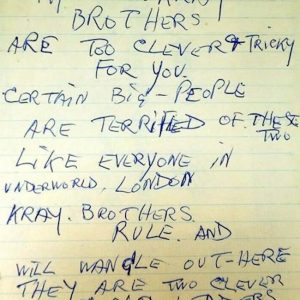 BROTHERS
ARE TOO CLEVER & TRICKY
FOR YOU.
CERTAIN BIG-PEOPLE
ARE TERRIFIED OF. THESE
TWO
LIKE EVERYONE IN
UNDERWORLD. LONDON
KRAY. BROTHERS.
RULE. AND
WILL WANGLE OUT-HERE
THEY ARE TWO CLEVER